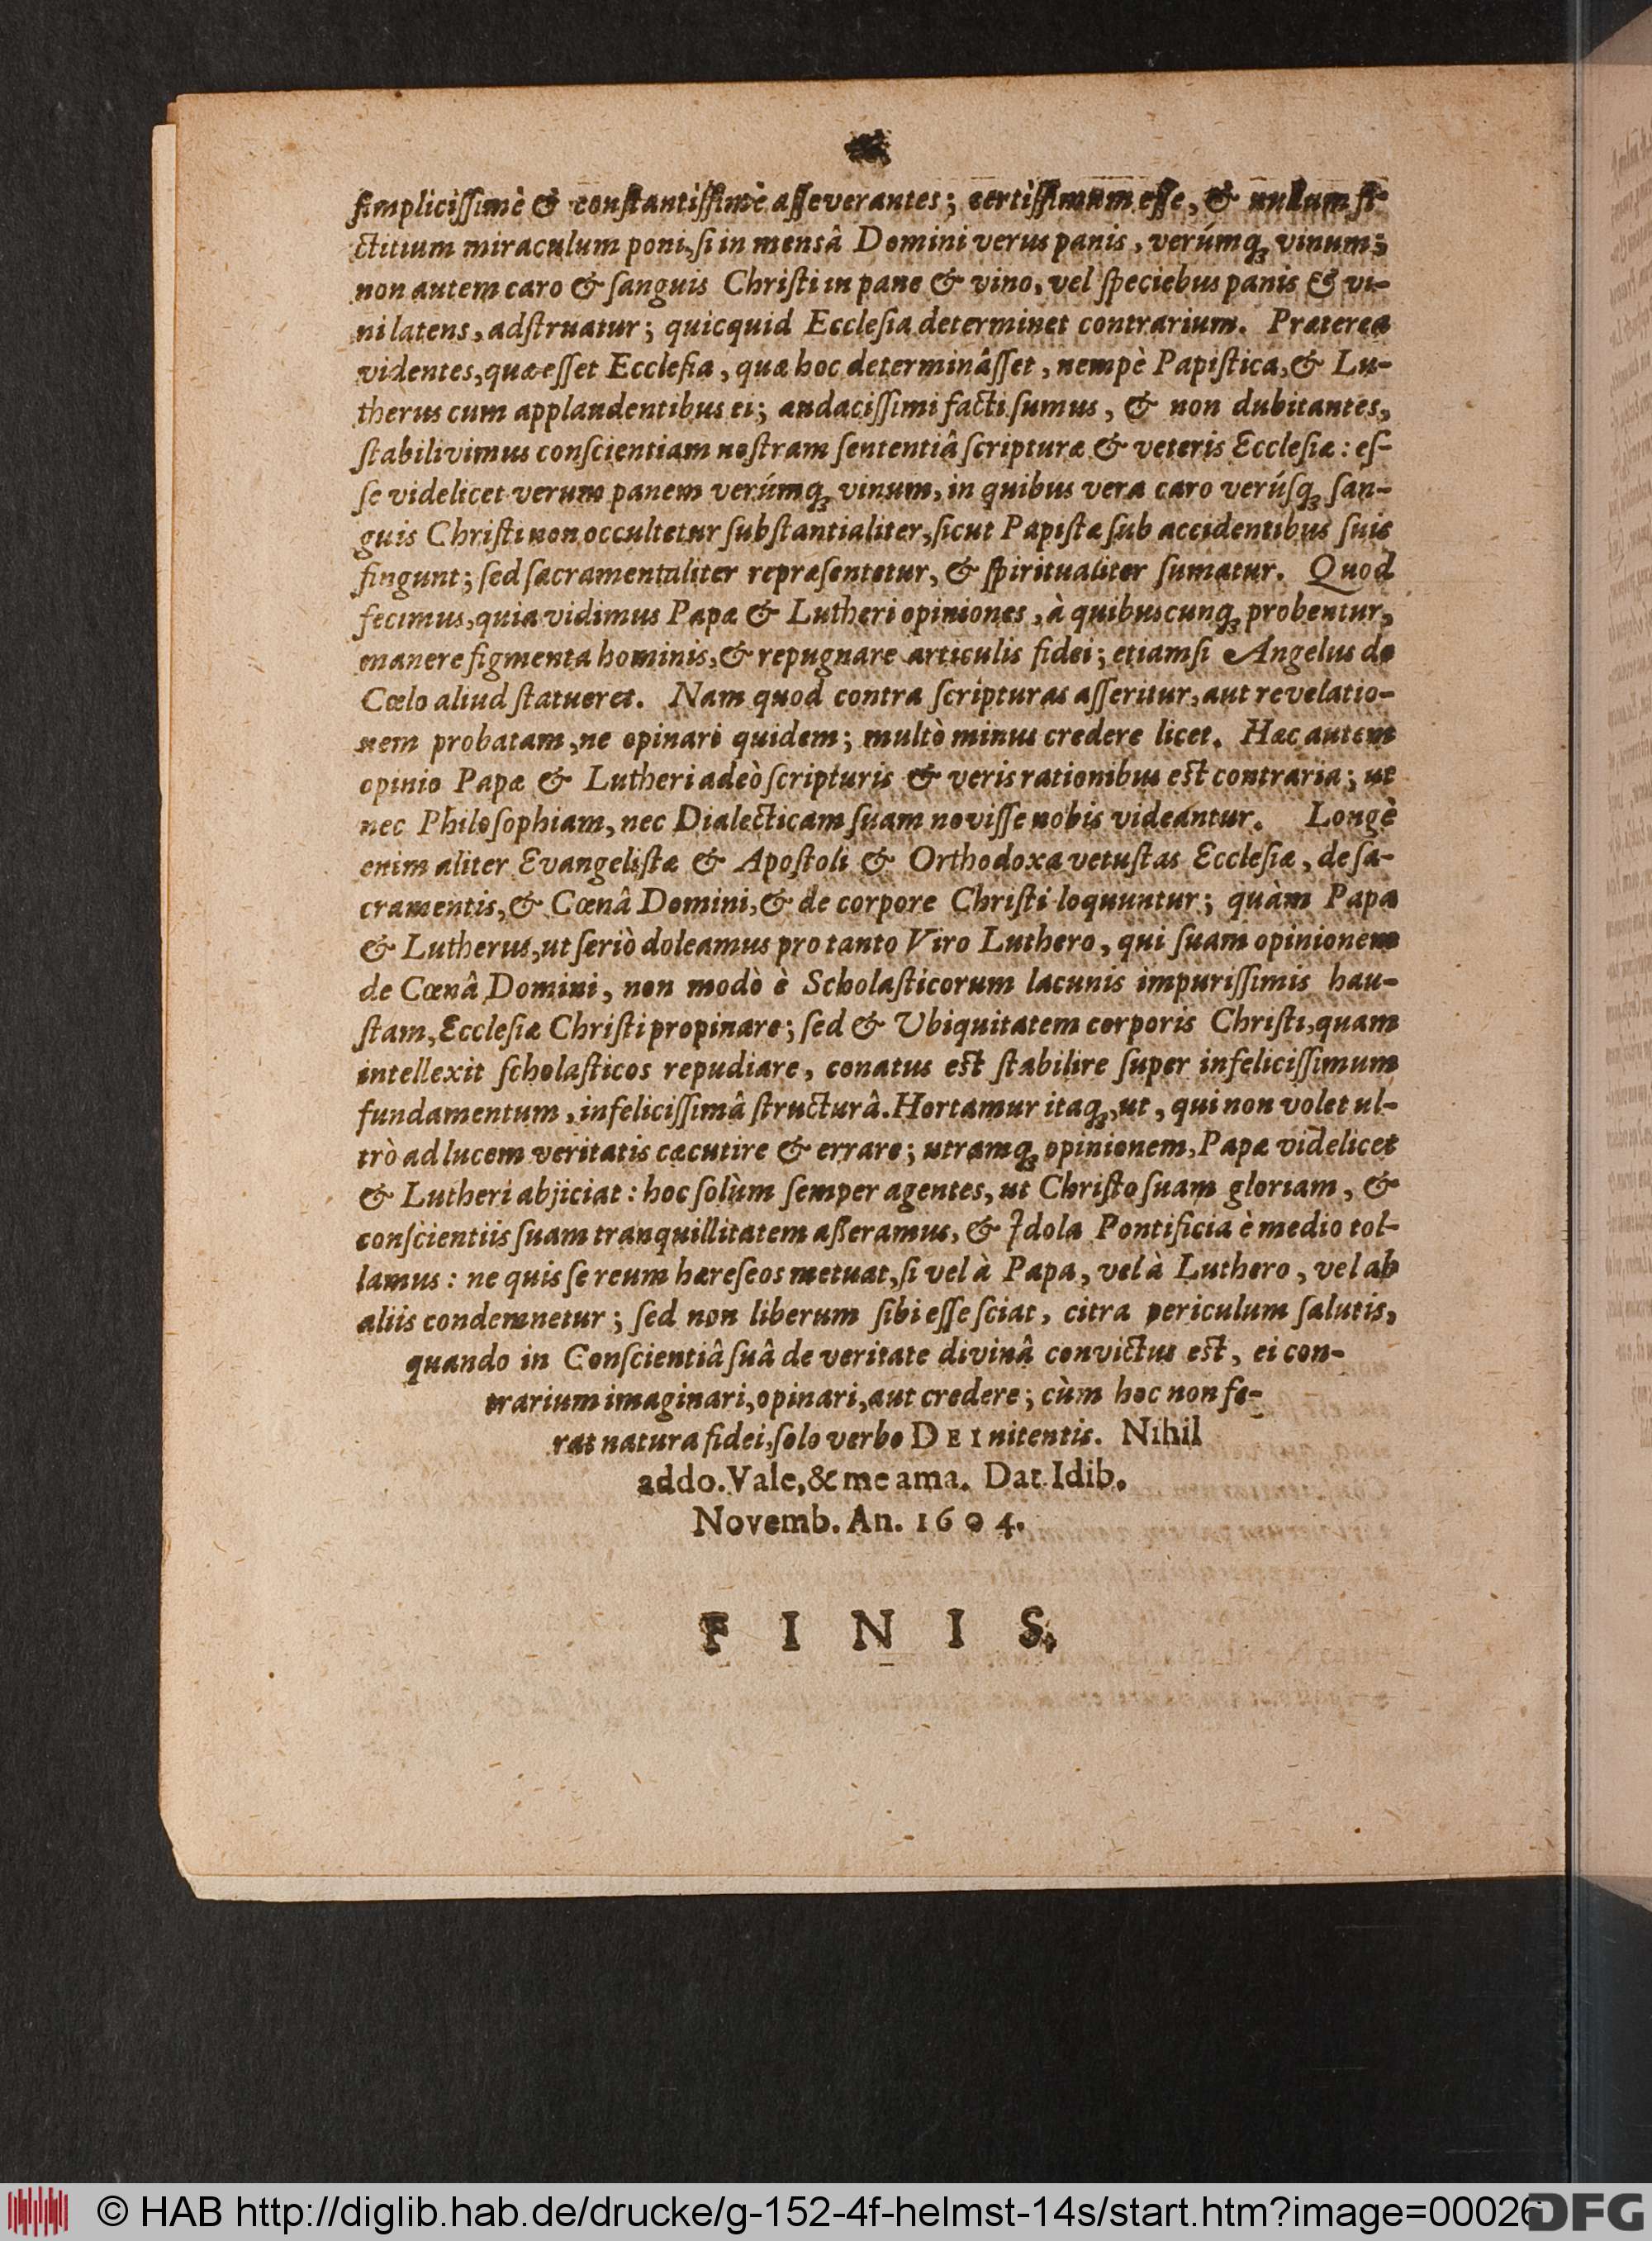 ſimpliciſſimè & conſtantiſſimè aſſeverantes; certiſſimum eſſe, & nullum fi-
ctitium miraculum poni, ſi in mensâ Domini verus panis, verúmq́ꝫ vinum;
non autem caro & ſanguis Chriſti in pane & vino, vel ſpeciebus panis & vi-
ni latens, adſtruatur; quicquid Eccleſia determinet contrarium. Præterea
videntes, quæ eſſet Eccleſia, quæ hoc determinâſſet, nempè Papiſtica, & Lu-
therus cum applaudentibus ei; audaciſſimi facti ſumus, & non dubitantes,
ſtabilivimus conſcientiam noſtram ſententiâ ſcripturæ & veteris Eccleſiæ: eſ-
ſe videlicet verum panem verúmqꝫ vinum, in quibus vera caro verúſqꝫ ſan-
guis Chriſti non occultetur ſubſtantialiter, ſicut Papiſtæ ſub accidentibus ſuis
fingunt; ſed ſacramentaliter repræſentetur, & ſpiritualiter ſumatur. Quod
fecimus, quia vidimus Papæ & Lutheri opiniones, à quibuscunqꝫ probentur,
manere figmenta hominis, & repugnare articulis fidei; etiamſi Angelus de
Cœlo aliud ſtatueret. Nam quod contra ſcripturas aſſeritur, aut revelatio-
nem probatam, ne opinari quidem; multò minus credere licet. Hæc autem
opinio Papæ & Lutheri adeò ſcripturis & veris rationibus eſt contraria; ut
nec Philoſophiam, nec Dialecticam ſuam noviſſe nobis videantur. Longè
enim aliter Evangeliſtæ & Apoſtoli & Orthodoxa vetuſtas Eccleſiæ, de ſa-
cramentis, & Cœnâ Domini, & de corpore Chriſti loquuntur; quàm Papa
& Lutherus, ut ſeriò doleamus pro tanto Viro Luthero, qui ſuam opinionem
de Cœnâ Domini, non modò è Scholaſticorum lacunis impuriſſimis hau-
ſtam, Eccleſiæ Chriſti propinare; ſed & Ubiquitatem corporis Chriſti, quam
intellexit ſcholaſticos repudiare, conatus eſt ſtabilire ſuper infeliciſſimum
fundamentum, infeliciſſimâ ſtructurâ. Hortamur itaqꝫ, ut, qui non volet ul-
trò ad lucem veritatis cæcutire & errare; utramqꝫ opinionem, Papæ videlicet
& Lutheri abjiciat: hoc ſolùm ſemper agentes, ut Chriſto ſuam gloriam, &
conſcientiis ſuam tranquillitatem aßeramus, & Idola Pontificia è medio tol-
lamus: ne quis ſe reum hæreſeos metuat, ſi vel à Papa, vel à Luthero, vel ab
aliis condemnetur; ſed non liberum ſibi eſſe ſciat, citra periculum ſalutis,
quando in Conſcientiâ ſuâ de veritate divinâ convictus eſt, ei con-
trarium imaginari, opinari, aut credere; cùm hoc non fe-
rat natura fidei, ſolo verbo DEI nitentis. Nihil
addo. Vale, & me ama. Dat Idib.
Novemb. An. 1604.
FINIS.
© HAB http://diglib.hab.de/drucke/g-152-4f-helmst-14s/start.htm?image=00026
DFG